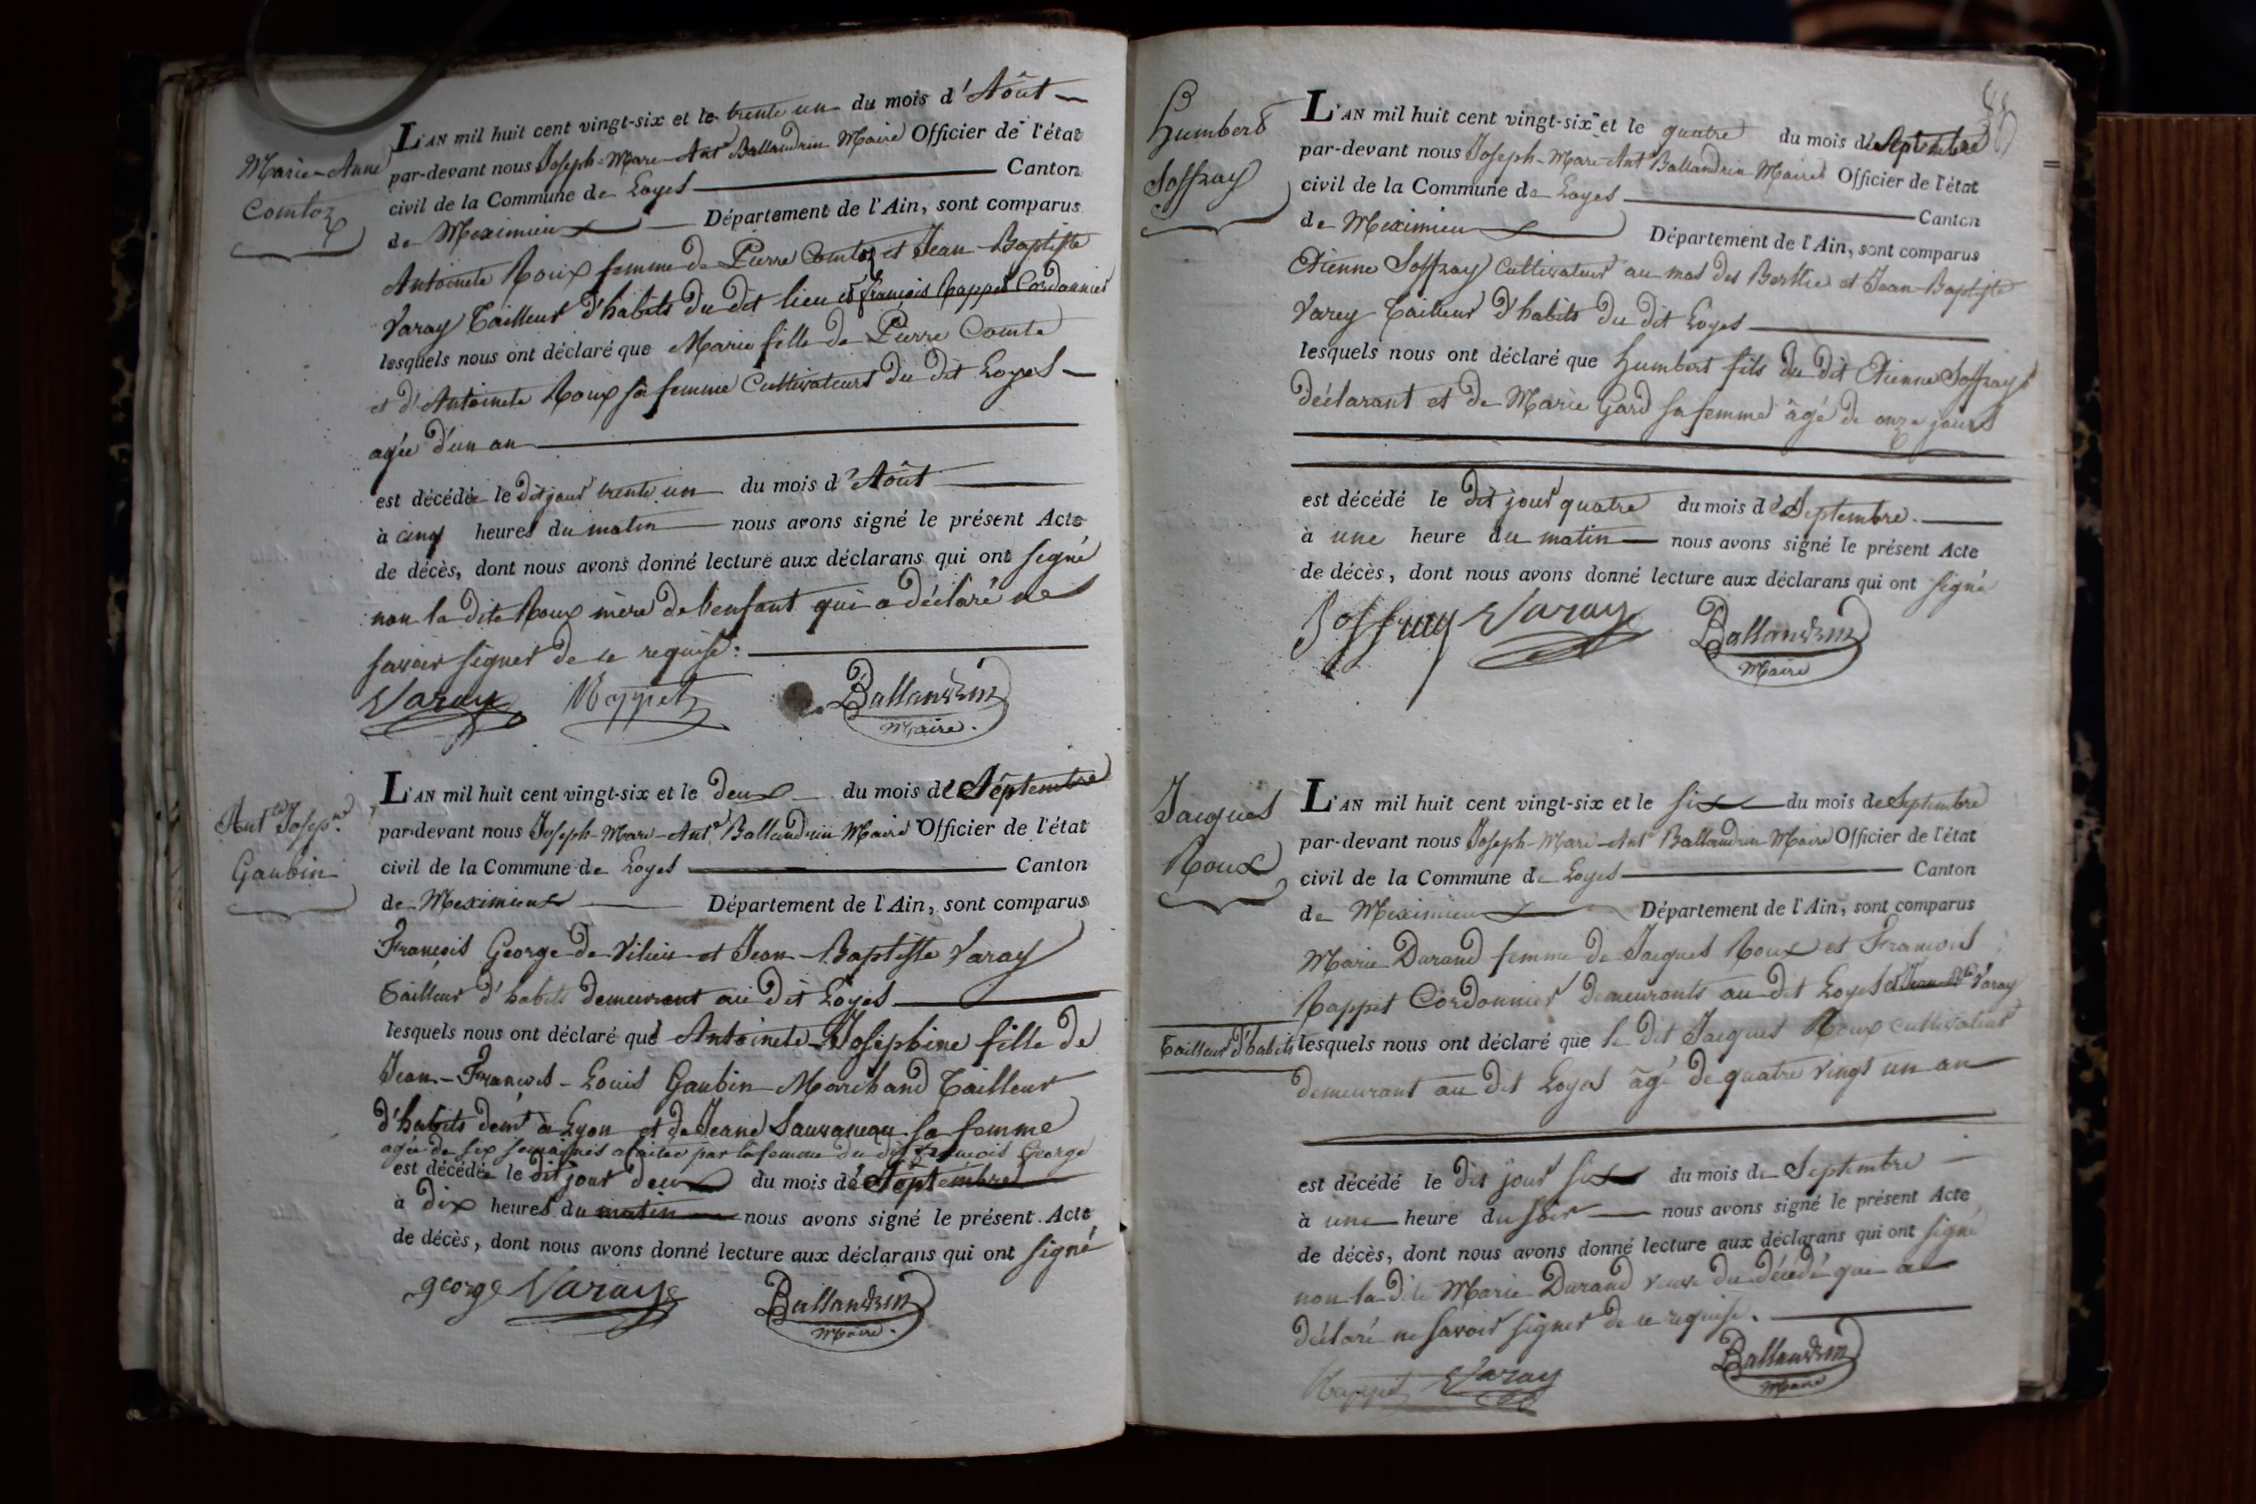 Marie-Anne
Comtoz
L'AN mil huit cent vingt-six et le trente un du mois d'Août
par-devant nous Joseph-Marc-Ant.e Ballandrin Maire Officier de l'état
civil de la Commune de Loyes Canton
de Meximieux Département de l'Ain, sont comparus
Antoinete Roux femme de Pierre Comtoz et Jean-Baptiste
Varay Tailleur d'habits du dit lieu et françois Rappet Cordonnier
lesquels nous ont déclaré que Marie fille de Pierre Comte
et d'Antoinete Roux sa femme Cultivateurs du dit Loyes
agée d'un an
est décédée le dit jour trente un du mois d'Août
à cinq heures du matin nous avons signé le présent Acte
de décès, dont nous avons donné lecture aux déclarans qui ont signé
non la dite Roux mère de l'enfant qui a déclaré ne
savoir signer de ce requise.
Varay Rappet Ballandrin
Maire.
Ant.te Joseph.ne
Gaubin
L'AN mil huit cent vingt-six et le deux du mois de Septembre
par-devant nous Joseph-Marc-Ant.e Ballandrin Maire Officier de l'état
civil de la Commune de Loyes Canton
de Meximieux Département de l'Ain, sont comparus
François George de Vilieu et Jean-Baptiste Varay
Tailleur d'habits demeurant au dit Loyes
lesquels nous ont déclaré que Antoinete-Josephine fille de
Jean-François-Louis Gaubin Marchand Tailleur
d'habits demt à Lyon et de Jeane Sauvaneau sa femme
agée de six semaines alaitée par la femme du dit françois George
est décédée le dit jour deux du mois de Septembre
à dix heures du matin nous avons signé le présent Acte
de décès, dont nous avons donné lecture aux déclarans qui ont signé
george Varay Ballandrin
Maire.
Humbert
Soffray
L'AN mil huit cent vingt-six et le quatre du mois de Septembre
par-devant nous Joseph-Marc-Ant.e Ballandrin Maire Officier de l'état
civil de la Commune de Loyes Canton
de Meximieux Département de l'Ain, sont comparus
Etienne Soffray Cultivateur au mas des Berthe et Jean-Baptiste
Varey Tailleur d'habits du dit Loyes
lesquels nous ont déclaré que humbert fils du dit Etienne Soffray
déclarant et de Marie Gard sa femme âgé de onze jours
est décédé le dit jour quatre du mois de Septembre.
à une heure du matin nous avons signé le présent Acte
de décès, dont nous avons donné lecture aux déclarans qui ont signé
Soffray Varay Ballandrin
Maire
Jacques
Roux
L'AN mil huit cent vingt-six et le six du mois de Septembre
par-devant nous Joseph-Marc-Ant.e Ballandrin Maire Officier de l'état
civil de la Commune de Loyes Canton
de Meximieux Département de l'Ain, sont comparus
Marie Durand femme de Jacques Roux et François
Rappet Cordonnier demeurants au dit Loyes et Jean-Bte Varay
Tailleur d'habits lesquels nous ont déclaré que le dit Jacques Roux cultivateur
demeurant au dit Loyes âgé de quatre vingt un an
est décédé le dit jour six du mois de Septembre
à une heure du soir nous avons signé le présent Acte
de décès, dont nous avons donné lecture aux déclarans qui ont signé
non la dite Marie Durand veuve du décédé qui a
déclaré ne savoir signer de ce requise.
Rappet Varay Ballandrin
Maire